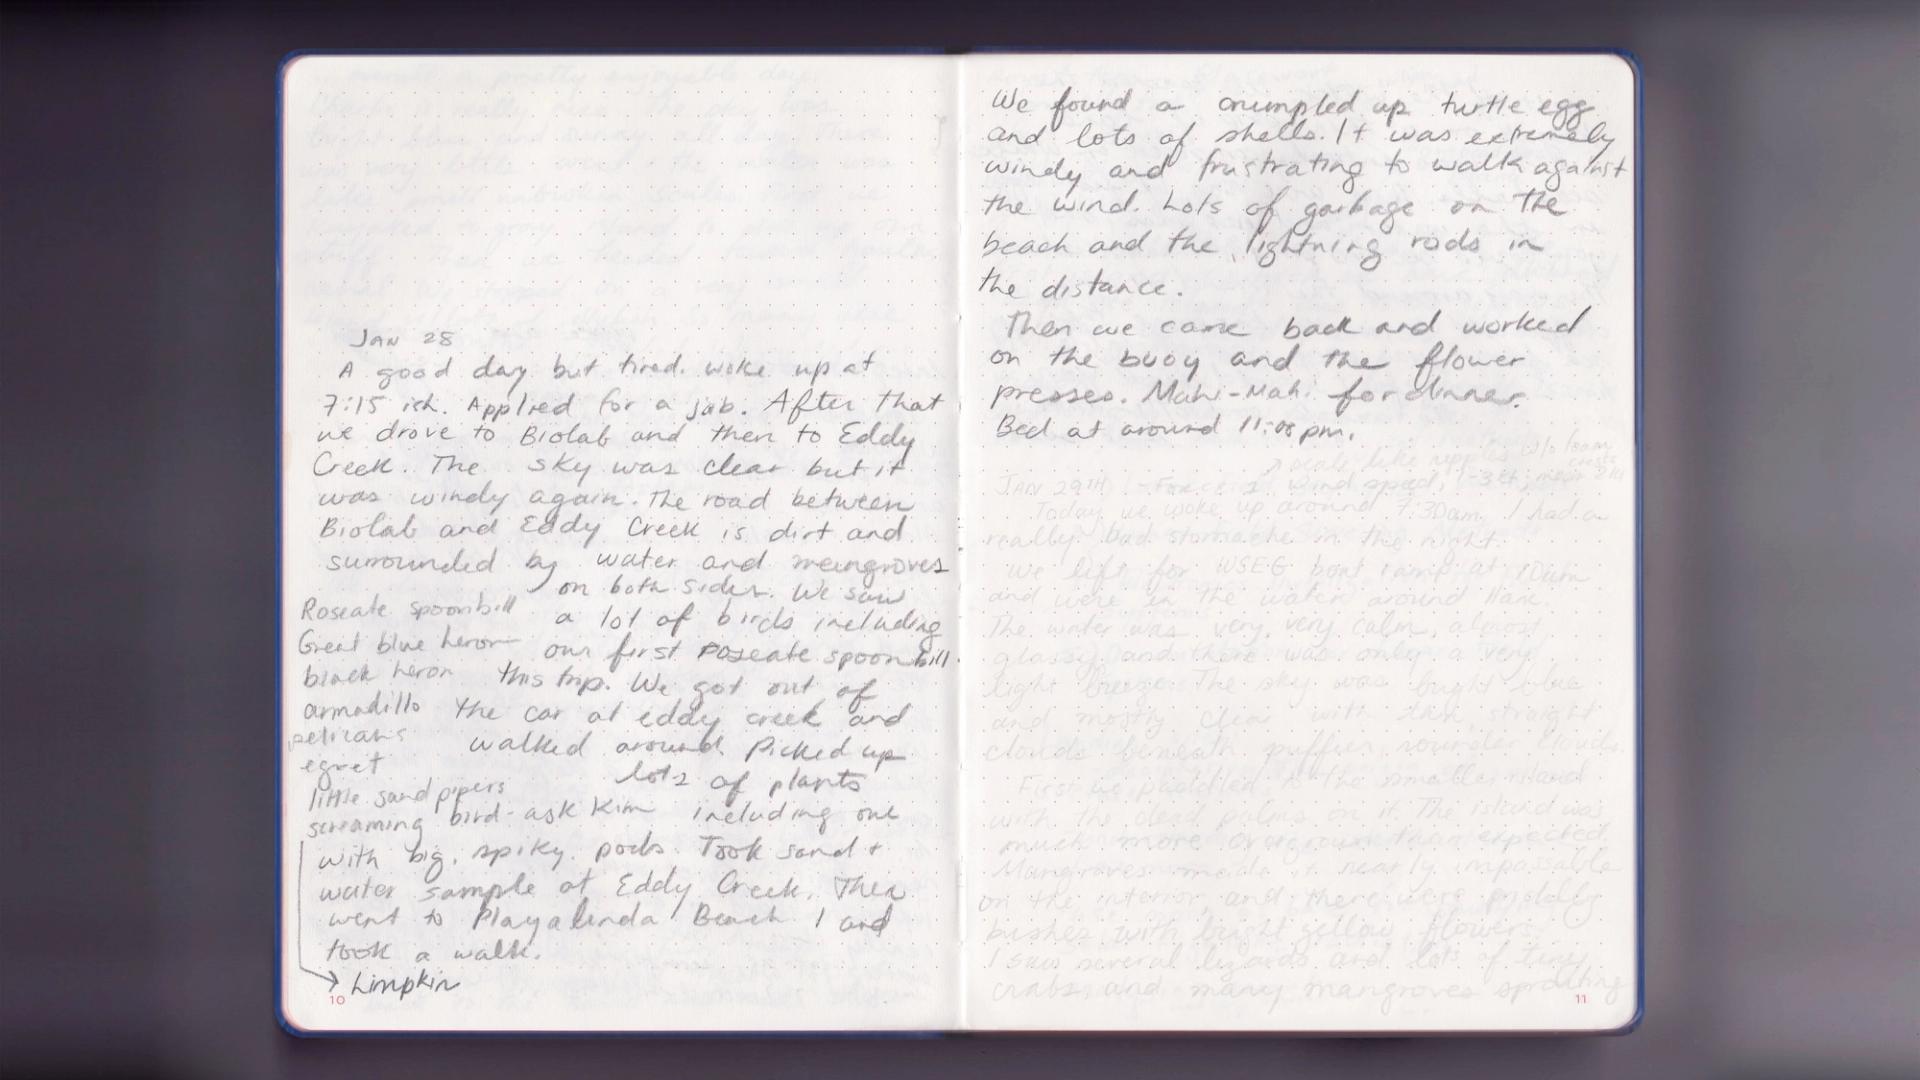 overall a pretty enjoyable day.
really nice. The sky was
bright blue and sunny all day. There
was very little wind & the water was
JAN 28
A good day but tired. woke up at
7:15 ish. Applied for a job. After that
we drove to Biolab and then to Eddy
Creek. The sky was clear but it
was windy again. The road between
Biolab and Eddy Creek is dirt and
surrounded by water and mangroves
on both sides. We saw
a lot of birds including
our first roseate spoonbill
this trip. We got out of
the car at eddy creek and
walked around. Picked up
lots of plants
including one
with big, spiky pods. Took sand +
water sample at Eddy Creek. Then
went to Playalinda Beach 1 and
took a walk.
Roseate spoonbill
Great blue heron
black heron
armadillo
pelicans
egret
little sand pipers
screaming bird - ask Kim
→ Limpkin
10
We found a crumpled up turtle egg
and lots of shells. It was extremely
windy and frustrating to walk against
the wind. Lots of garbage on the
beach and the lightning rods in
the distance.
Then we came back and worked
on the buoy and the flower
presses. Mahi-Mahi for dinner.
Bed at around 11:08 pm.
scale like ripples w/o foam crests
JAN 29TH - Force 1 wind speed, 1-3 kt,
Today we woke up around 7:30am. I had a
really bad stomache in the night.
We left for WSEG boat ramp at 10am
and were in the water around 11am.
The water was very, very calm, almost
glassy and there was only a very
light breeze. The sky was bright blue
and mostly clear with thin straight
clouds beneath puffier rounder clouds.
First we paddled to the smaller island
with the dead palms on it. The island was
much more overgrown than expected.
Mangroves made it nearly impassable
on the interior, and there were prickly
bushes with bright yellow flowers.
I saw several lizards and lots of tiny
crabs, and many mangroves sprouting
11